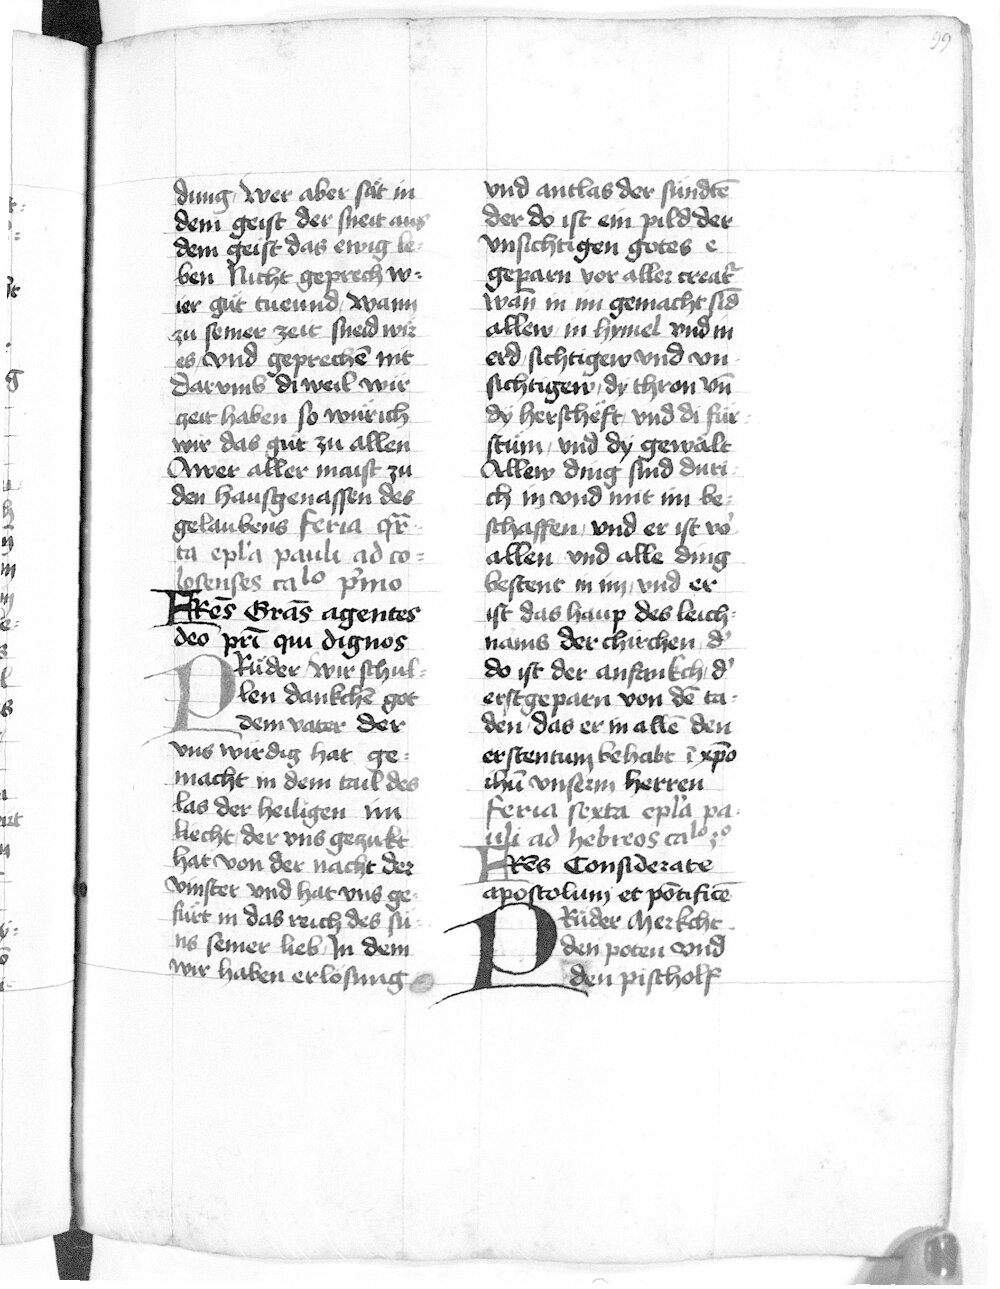 99
dung / Wer aber sät in
dem geist der sneit aus
dem geist das ewig le-
ben Nicht geprech w-
ier güt tueund / Wann
zu seiner zeit sneid wir
es / Vnd geprechē nit
Darvmb di weil wir
zeit haben so würich
wir das güt zu allen
Awer aller maist zu
den hausgenassen des
gelaubens feria qr̄-
ta epl'a pauli ad co-
losenses caᶫᵒ p'mo
FRēs Grās agentes
deo pr̄i qui dignos
PRüder / Wir schul-
len dankchē got
dem vater der
vns wirdig hat ge-
macht in dem tail des
las der heiligen im
liecht / der vns gezukt
hat von der nacht der
vinster vnd hat vns ge-
fürt in das reich des su-
ns seiner lieb / In dem
wir haben erlosung
vnd antlas der sündtē
der do ist ein pild der
vnsichtigen gotes e
geparn vor aller creat'
wañ in im gemacht sīd
allew / in hymel vnd in
erd / sichtigew vnd vn-
sichtigew / dy thron vñ
dy herscheft / vnd di für-
stüm / vnd dy gewalt
Allew ding sind dur-
ch in vnd mit im be-
schaffen / vnd er ist vō
allen vnd alle ding
bestent in im / vnd er
ist das haup des leich-
nams der chirchen / d'
do ist der anfankch / d'
erstgeparn von dē ta-
den / das er in allē den
erstentum behabt ī xp̄o
ihū vnserm herren
feria sexta epl'a pa-
uli ad hebreos caᶫᵒ 3º
FRēs Considerate
apostolum et pōtificē
PRüder Merkcht
den poten vnd
den pischolf